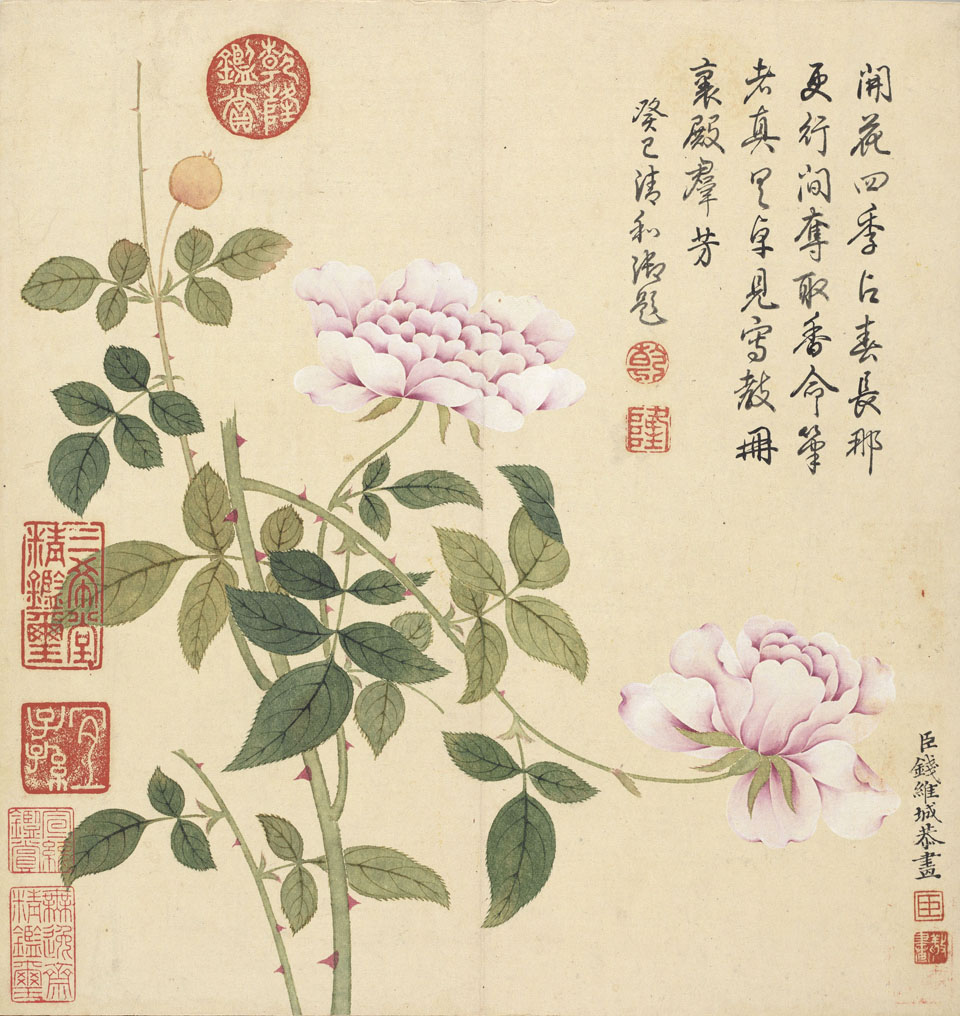 開花四季占春長那
更行間奪取香命筆
者真具卓見寫教冊
裏殿羣芳
癸巳清和御題
乾
隆
乾隆鑑賞
臣錢維城恭畫
臣
三希堂精鑑璽
宜子孫
宣統鑑賞
無逸齋精鑑璽